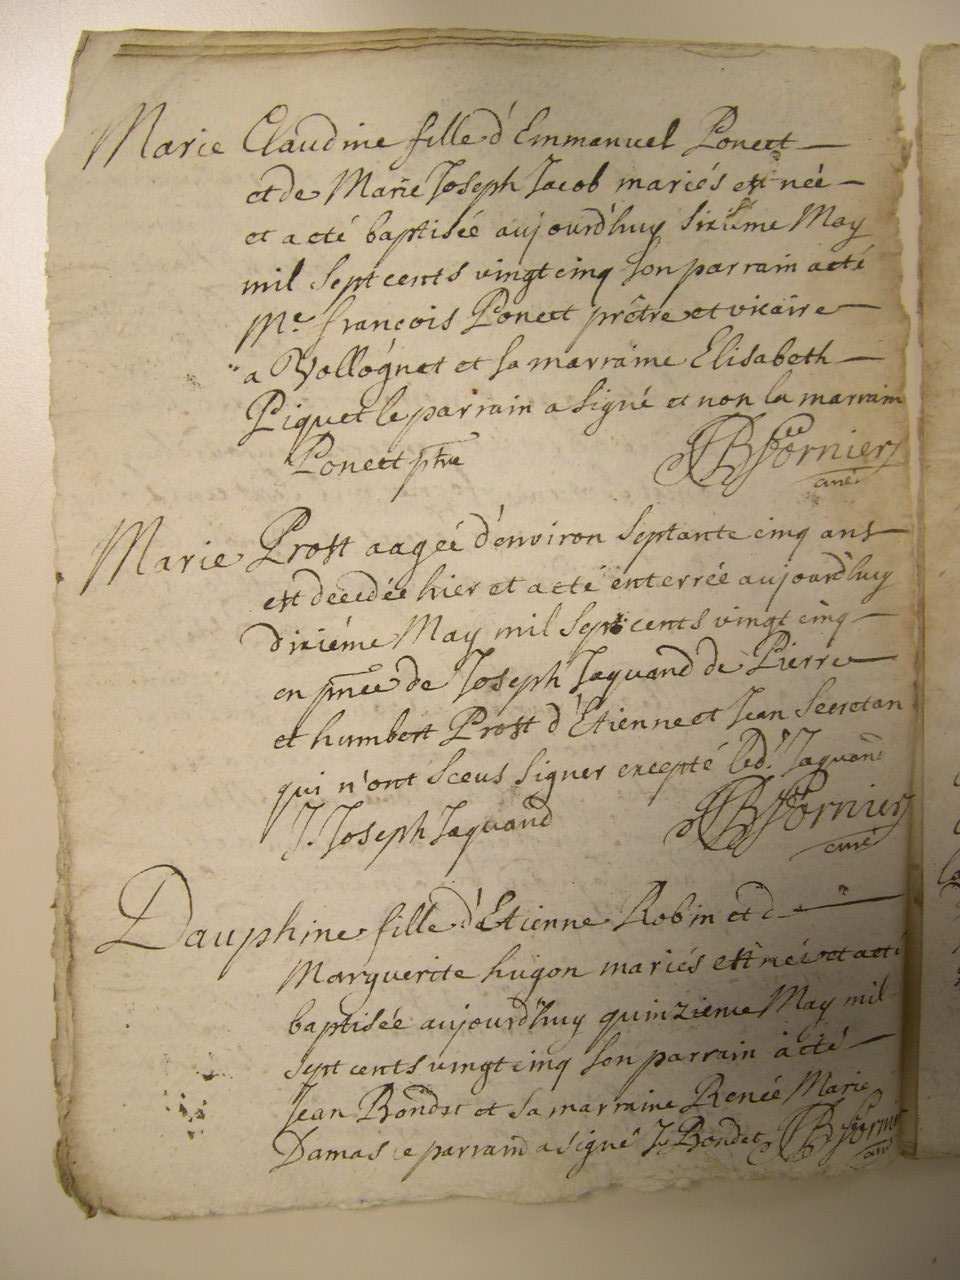 Marie Claudine fille d'Emmanuel Poncet
et de Marie Joseph Jacob mariés est née
et a eté baptisée aujourd'huy sixiéme May
mil sept cents vingt cinq son parrain a eté
Me. françois Poncet prêtre et vicaire
a Vollognat et sa marraine Elisabeth
Piquet le parrain a signé et non la marraine
Poncet ptre JB fornier
curé
Marie Prost aagée d'environ septante cinq ans
est decedée hier et a eté enterrée aujourd'huy
dixiéme May mil sept cents vingt cinq
en pnce de Joseph Jaquand de Pierre
et humbert Prost d'Etienne et Jean Secretan
qui n'ont sceus signer excepté led. Jaquand
J. Joseph Jaquand JB fornier
curé
Dauphine fille d'Etienne Robin et d
Marguerite hugon mariés est née et a eté
baptisée aujourd'huy quinzieme May mil
sept cents vingt cinq son parrain a eté
Jean Bondet et sa marraine Renée Marie
Damas le parrain a signé J Bondet JB fornier
curé